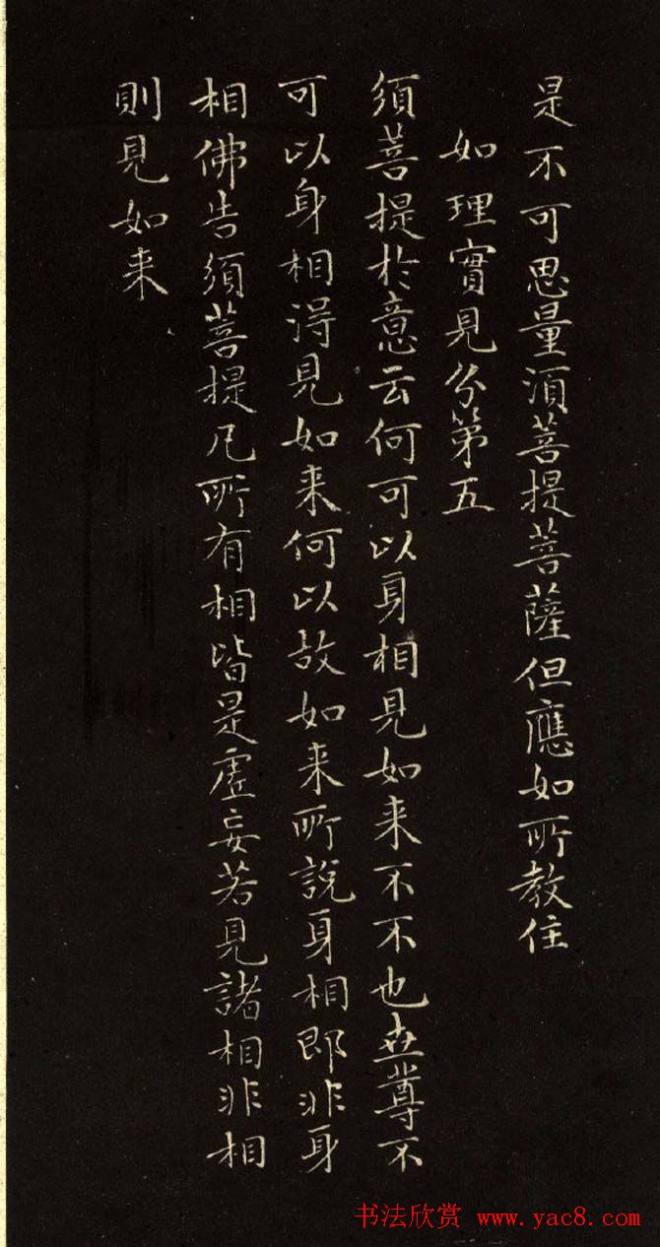 是不可思量須菩提菩薩但應如所教住
如理實見分第五
須菩提於意云何可以身相見如来不不也世尊不
可以身相得見如来何以故如来所說身相即非身
相佛告須菩提凡所有相皆是虛妄若見諸相非相
則見如来
书法欣赏 www.yac8.com